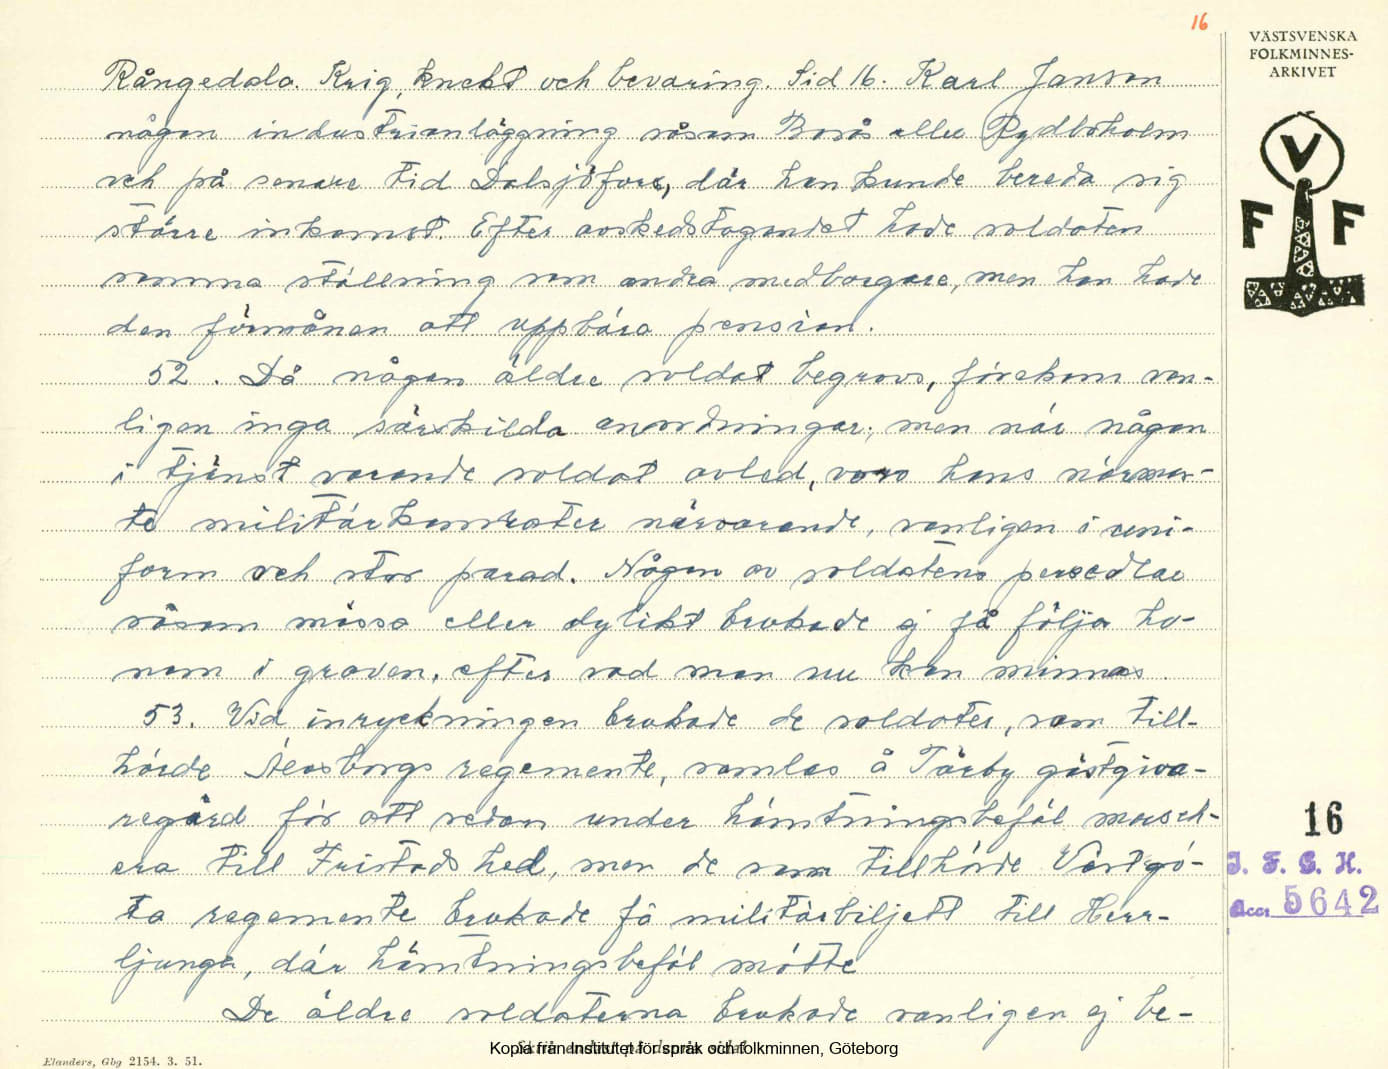 16
VÄSTSVENSKA
FOLKMINNES-
ARKIVET
V
F F
Rångedala. Krig, knekt och bevaring. Sid 16. Karl Janson
någon industrianläggning såsom Borås eller Rydboholm
och på senare tid Dalsjöfors, där han kunde bereda sig
större inkomst. Efter avskedstagandet hade soldaten
samma ställning som andra medborgare, men han hade
den förmånen att uppbära pension.
52. Då någon äldre soldat begravs, förekom van-
ligen inga särskilda anordningar; men när någon
i tjänst varande soldat avled, voro hans närmas-
te militärkamrater närvarande, vanligen i uni-
form och stor parad. Någon av soldatens persedlar
såsom mössa eller dylikt brukade ej få följa ho-
nom i graven, efter vad man nu kan minnas.
53. Vid inryckningen brukade de soldater, som till-
hörde Älvsborgs regemente, samlas å Tärby gästgiva-
regård för att sedan under hämtningsbefäl masch-
era till Fristads hed, men de som tillhörde Västgö-
ta regemente brukade få militärbiljett till Herr-
ljunga, där hämtningsbefäl mötte
De äldre soldaterna brukade vanligen ej be-
16
I. F. G. H.
Acc. 5642
Elanders, Gbg 2154. 3. 51.
Kopia från Institutet för språk och folkminnen, Göteborg